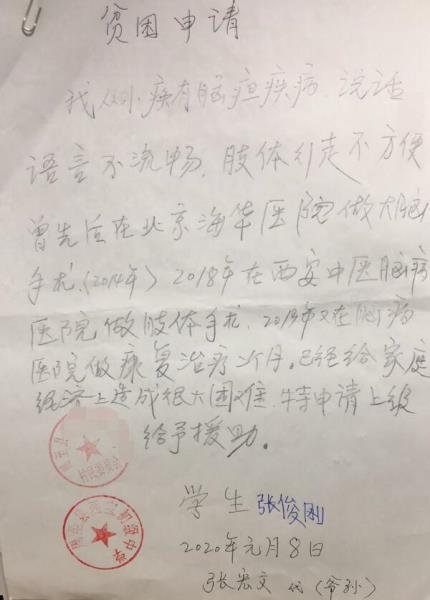 贫困申请
我从小患有脑疸疾病,说话
语言不流畅,肢体行走不方便
曾先后在北京海华医院做大脑
手术(2014年)2018年在西安中医脑病
医院做肢体手术,2019年又在脑病
医院做康复治疗个月。已经给家庭
经济上造成很大困难,特申请上级
给予援助。
村民委员会
初级中学
学生 张俊刚
2020年元月8日
张宏文 代(爷孙)